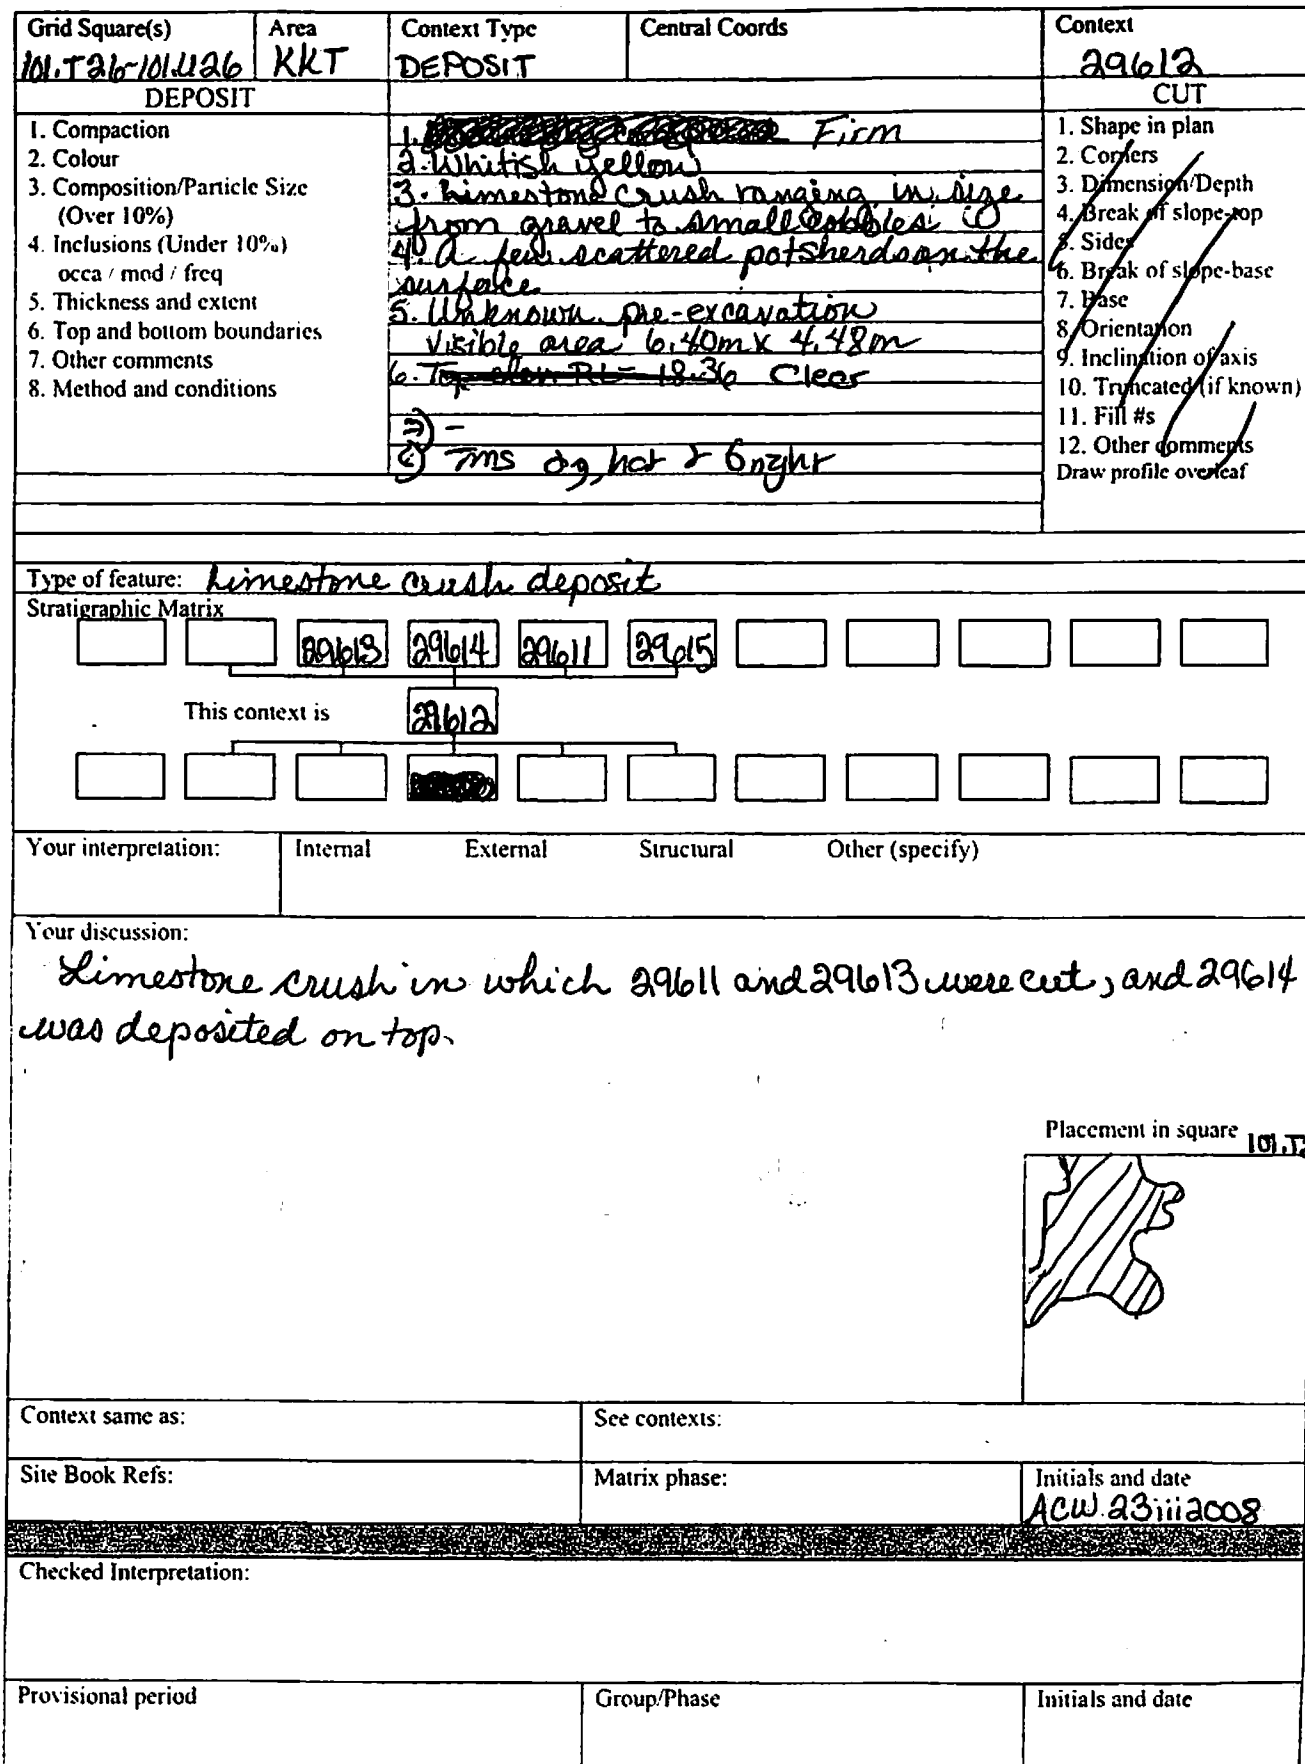 Grid Square(s) Area Context Type Central Coords Context
101.T26-101.U26 KKT DEPOSIT 29612
DEPOSIT CUT
1. Compaction
2. Colour
3. Composition/Particle Size
(Over 10%)
4. Inclusions (Under 10%)
occa / mod / freq
5. Thickness and extent
6. Top and bottom boundaries
7. Other comments
8. Method and conditions
1. Firm
2. Whitish yellow
3. Limestone crush ranging in size
from gravel to small cobbles
4. A few scattered potsherds on the
surface
5. Unknown pre-excavation
visible area 6.40m x 4.48m
6. Top elev. RL = 18.36 Clear
7) -
8) TMS dry, hot & bright
1. Shape in plan
2. Corners
3. Dimension/Depth
4. Break of slope-top
5. Sides
6. Break of slope-base
7. Base
8. Orientation
9. Inclination of axis
10. Truncated (if known)
11. Fill #s
12. Other comments
Draw profile overleaf
Type of feature: Limestone crush deposit
Stratigraphic Matrix
29613 29614 29611 29615
This context is 29612
Your interpretation: Internal External Structural Other (specify)
Your discussion:
Limestone crush in which 29611 and 29613 were cut, and 29614
was deposited on top.
Placement in square 101.T2
Context same as: See contexts:
Site Book Refs: Matrix phase: Initials and date
ACW 23iii2008
Checked Interpretation:
Provisional period Group/Phase Initials and date